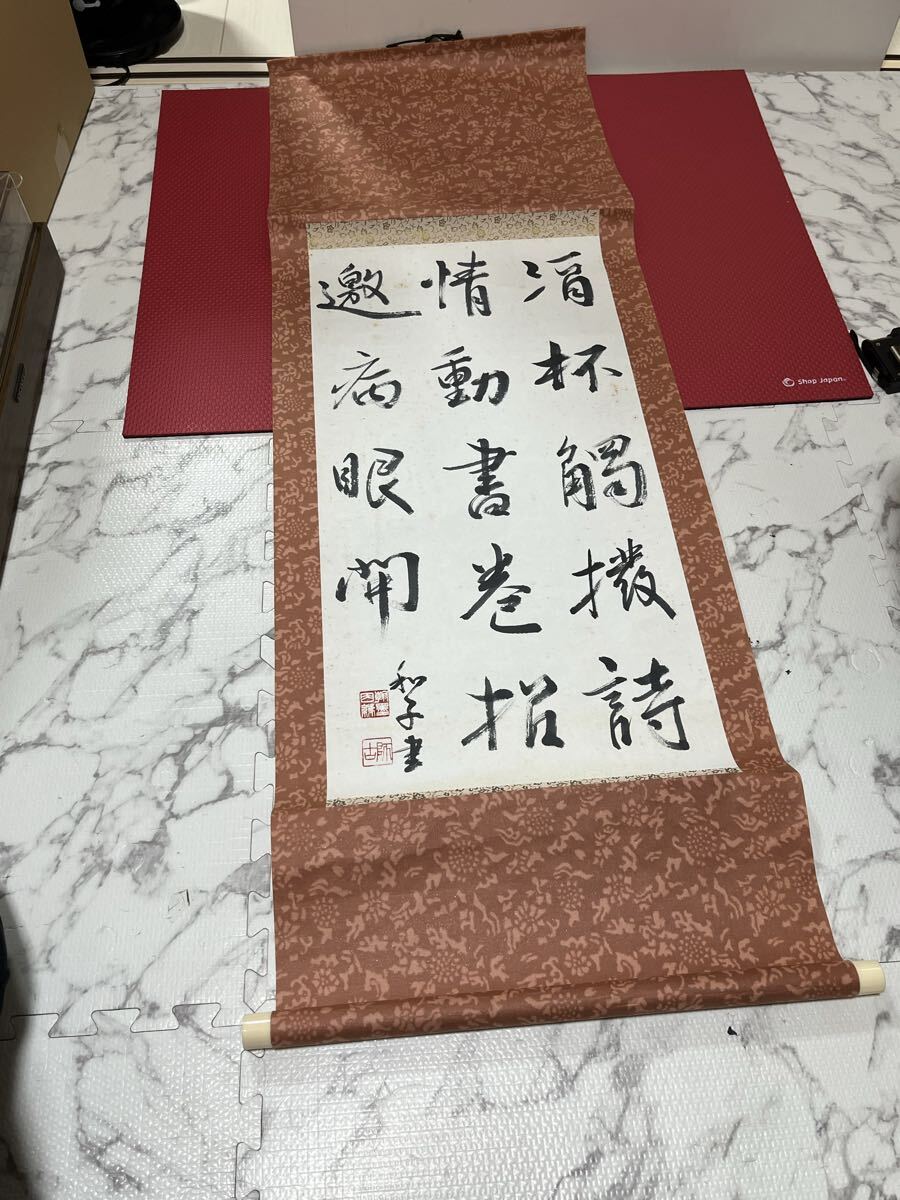 涓杯觸撥詩
情動書卷招
邀病眼開
和子書
師古
Shop Japan